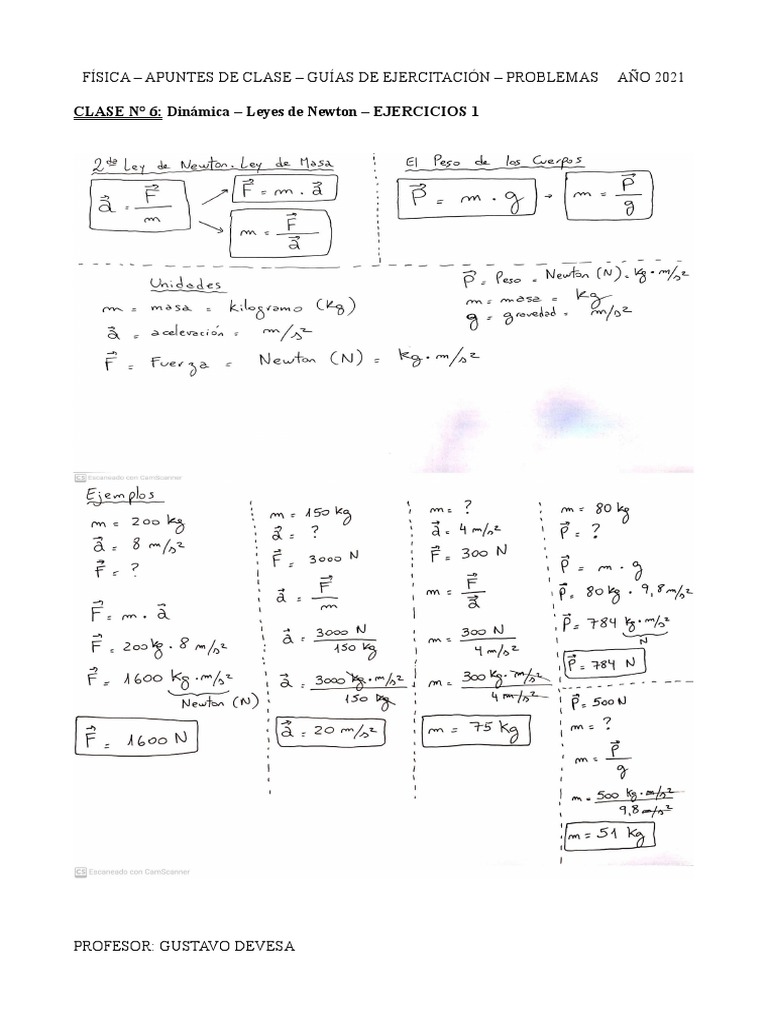 FÍSICA – APUNTES DE CLASE – GUÍAS DE EJERCITACIÓN – PROBLEMAS AÑO 2021
CLASE N° 6: Dinámica – Leyes de Newton – EJERCICIOS 1
2da Ley de Newton. Ley de Masa
a⃗ = F⃗ / m
F⃗ = m . a⃗
m = F⃗ / a⃗
El Peso de los Cuerpos
P⃗ = m . g → m = P⃗ / g
Unidades
m = masa = kilogramo (kg)
a⃗ = aceleración = m/s²
F⃗ = Fuerza = Newton (N) = kg . m/s²
P⃗ = Peso = Newton (N) = kg . m/s²
m = masa = kg
g = gravedad = m/s²
CS Escaneado con CamScanner
Ejemplos
m = 200 kg
a⃗ = 8 m/s²
F⃗ = ?
F⃗ = m . a⃗
F⃗ = 200kg . 8 m/s²
F⃗ = 1600 kg . m/s²
Newton (N)
F⃗ = 1600 N
m = 150 kg
a⃗ = ?
F⃗ = 3000 N
a⃗ = F⃗ / m
a⃗ = 3000 N / 150 kg
a⃗ = 3000 kg . m/s² / 150 kg
a⃗ = 20 m/s²
m = ?
a⃗ = 4 m/s²
F⃗ = 300 N
m = F⃗ / a⃗
m = 300 N / 4 m/s²
m = 300 kg . m/s² / 4 m/s²
m = 75 kg
m = 80 kg
P⃗ = ?
P⃗ = m . g
P⃗ = 80 kg . 9,8 m/s²
P⃗ = 784 kg . m/s²
N
P⃗ = 784 N
P⃗ = 500 N
m = ?
m = P⃗ / g
m = 500 kg . m/s² / 9,8 m/s²
m = 51 kg
CS Escaneado con CamScanner
PROFESOR: GUSTAVO DEVESA